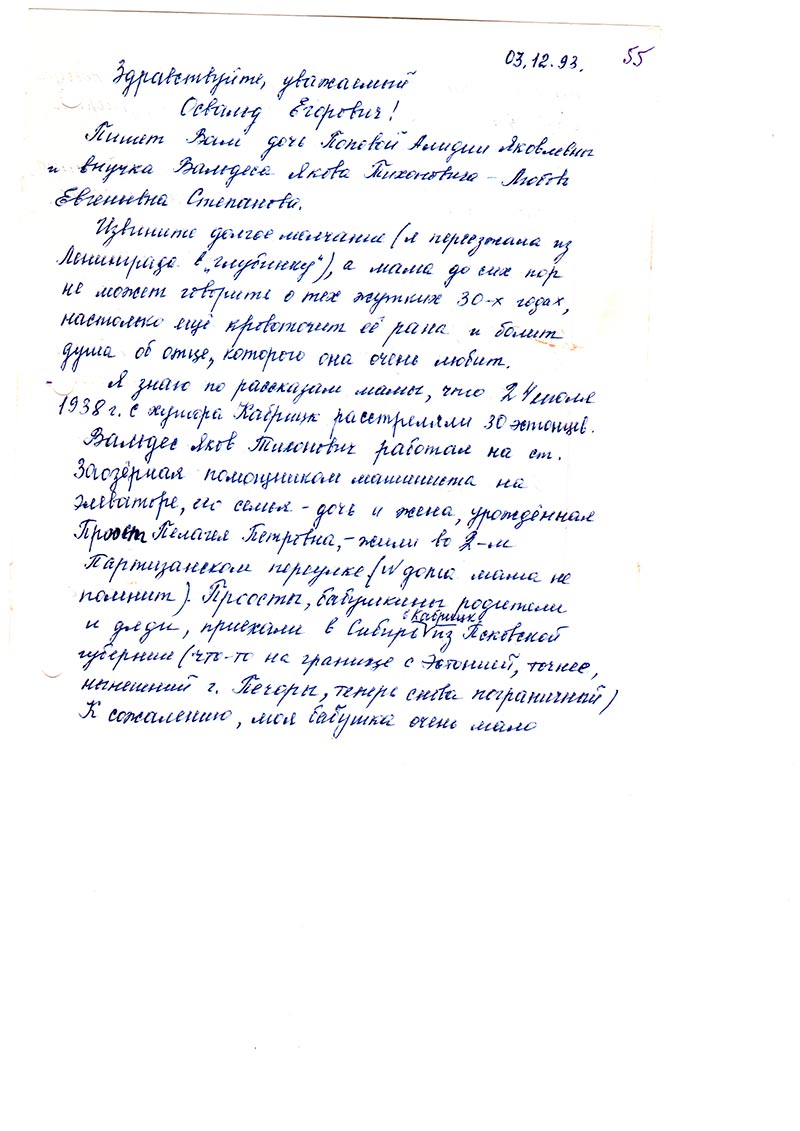 03.12.93. 55
Здравствуйте, уважаемый
Освальд Егорович!
Пишет Вам дочь Поповой Алидии Яковлевны
и внучка Вальдеса Якова Тихоновича – Любовь
Евгеньевна Степанова.
Извините долгое молчание (я переезжала из
Ленинграда в „глубинку“), а мама до сих пор
не может говорить о тех жутких 30-х годах,
настолько ещё кровоточит её рана и болит
душа об отце, которого она очень любит.
Я знаю по рассказам мамы, что 24 июля
1938 г. с хутора Кабрицк расстреляли 30 эстонцев.
Вальдес Яков Тихонович работал на ст.
Заозёрная помощником машиниста на
элеваторе, его семья – дочь и жена, урождённая
Проост Пелагея Петровна, – жили во 2-м
Партизанском переулке (№ дома мама не
помнит). Проосты, бабушкины родители
и дяди, приехали в Сибирь с. Кабрицк из Псковской
губернии (что-то на границе с Эстонией, точнее,
нынешний г. Печоры, теперь снова пограничный)
К сожалению, моя бабушка очень мало